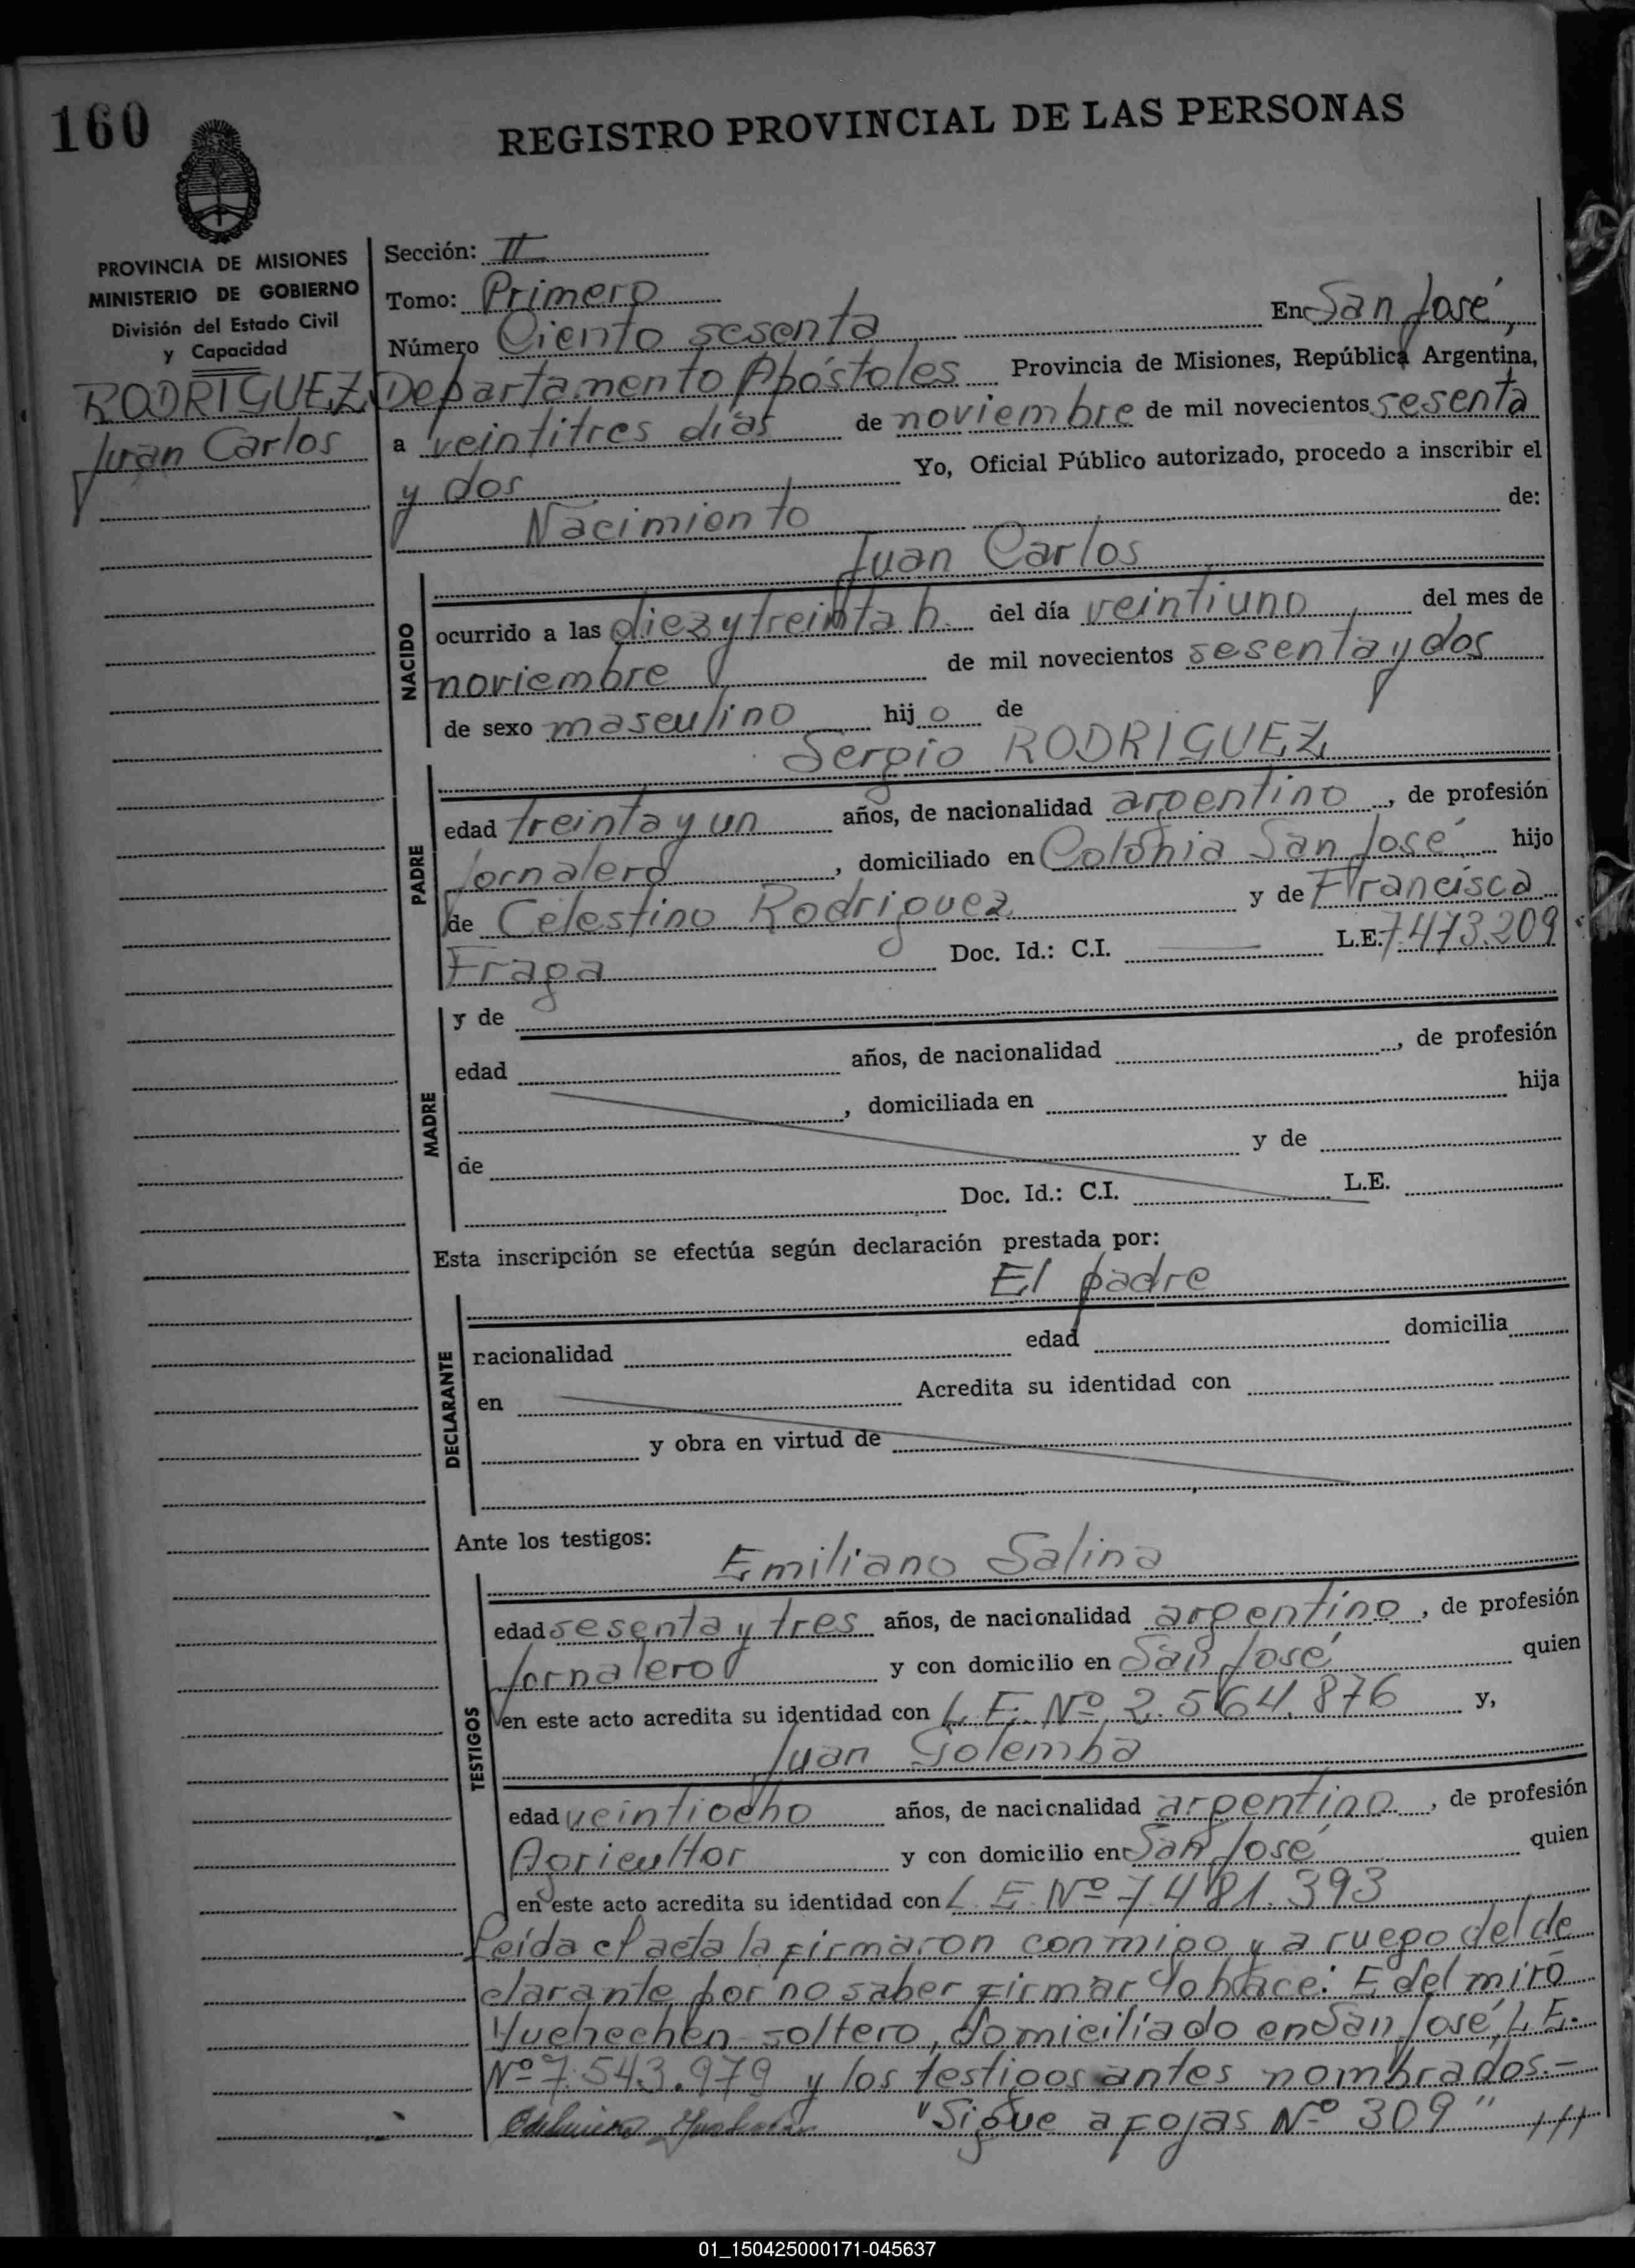 160
REGISTRO PROVINCIAL DE LAS PERSONAS
PROVINCIA DE MISIONES
MINISTERIO DE GOBIERNO
División del Estado Civil
y Capacidad
RODRIGUEZ
Juan Carlos
Sección: II
Tomo: Primero
Número Ciento sesenta En San José,
Departamento Apóstoles Provincia de Misiones, República Argentina,
a veintitres días de noviembre de mil novecientos sesenta
y dos Yo, Oficial Público autorizado, procedo a inscribir el
Nacimiento de:
Juan Carlos
NACIDO
ocurrido a las diez y treinta h. del día veintiuno del mes de
noviembre de mil novecientos sesenta y dos
de sexo masculino hijo de
Sergio RODRIGUEZ
PADRE
edad treinta y un años, de nacionalidad argentino, de profesión
jornalero, domiciliado en Colonia San José hijo
de Celestino Rodriguez y de Francisca
Fraga Doc. Id.: C.I. L.E. 7.473.209
MADRE
y de
edad años, de nacionalidad , de profesión
, domiciliada en hija
de y de
Doc. Id.: C.I. L.E.
Esta inscripción se efectúa según declaración prestada por:
El padre
DECLARANTE
racionalidad edad domicilia
en Acredita su identidad con
y obra en virtud de
Ante los testigos:
Emiliano Salina
TESTIGOS
edad sesenta y tres años, de nacionalidad argentino, de profesión
jornalero y con domicilio en San José quien
en este acto acredita su identidad con L. E. Nº 2.564.876 y,
Juan Golemba
edad veintiocho años, de nacionalidad argentino, de profesión
Agricultor y con domicilio en San José quien
en este acto acredita su identidad con L. E. Nº 7.481.393
Leída el acta la firmaron conmigo y a ruego del de
clarante por no saber firmar lo hace: Edelmiro
soltero, domiciliado en San José, L. E.
Nº 7.543.979 y los testigos antes nombrados.=
"Sigue a fojas Nº 309" ///
01_150425000171-045637